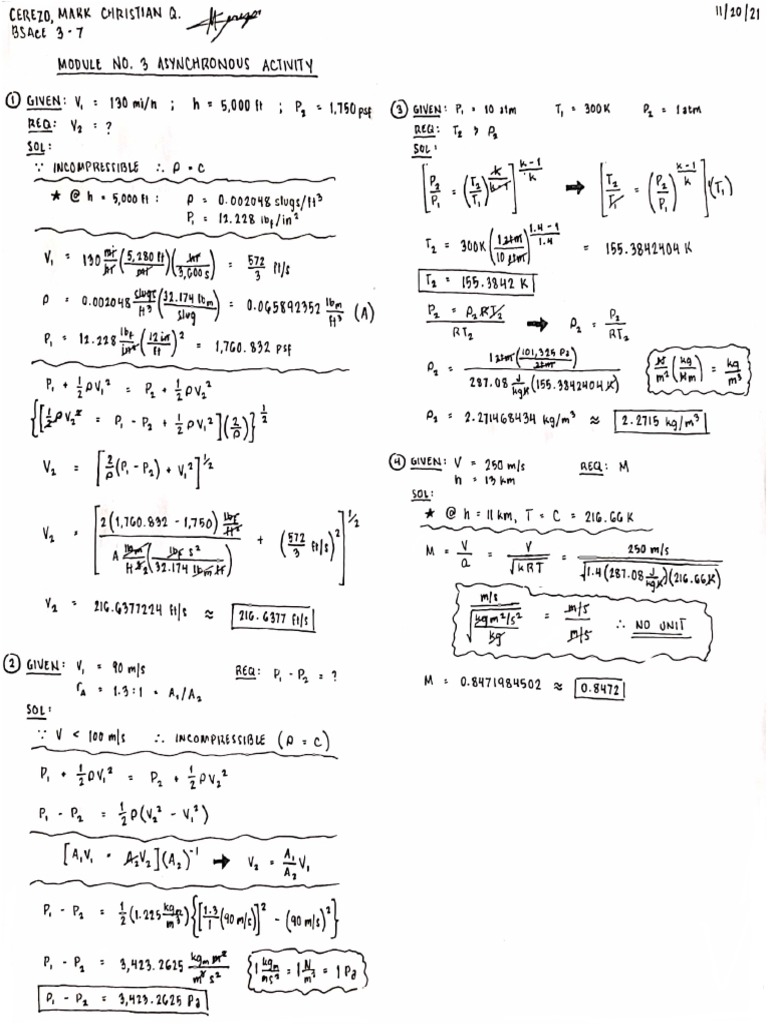 CEREZO, MARK CHRISTIAN Q.
BSAeE 3-7
11/20/21
MODULE NO. 3 ASYNCHRONOUS ACTIVITY
① GIVEN: V₁ = 130 mi/h ; h = 5,000 ft ; P₂ = 1,750 psf
REQ: V₂ = ?
SOL:
∵ INCOMPRESSIBLE ∴ ρ = C
★ @ h = 5,000 ft : ρ = 0.002048 slugs/ft³
P₁ = 12.228 lbf/in²
V₁ = 130 mi/hr (5,280 ft/mi)(hr/3,600 s) = 572/3 ft/s
ρ = 0.002048 slugs/ft³ (32.174 lbm/slug) = 0.065892352 lbm/ft³ (A)
P₁ = 12.228 lbf/in² (12 in/ft)² = 1,760.832 psf
P₁ + ½ρV₁² = P₂ + ½ρV₂²
{[½ρV₂² = P₁ - P₂ + ½ρV₁²](2/ρ)}^½
V₂ = [2/ρ (P₁ - P₂) + V₁²]^½
V₂ = [2(1,760.832 - 1,750) lbf/ft² / A lbm/ft³ (lbf s²/32.174 lbm ft) + (572/3 ft/s)²]^½
V₂ = 216.6377224 ft/s ≈ 216.6377 ft/s
② GIVEN: V₁ = 90 m/s REQ: P₁ - P₂ = ?
r_A = 1.3 : 1 = A₁/A₂
SOL:
∵ V < 100 m/s ∴ INCOMPRESSIBLE (ρ = C)
P₁ + ½ρV₁² = P₂ + ½ρV₂²
P₁ - P₂ = ½ρ(V₂² - V₁²)
[A₁V₁ = A₂V₂](A₂)⁻¹ → V₂ = A₁/A₂ V₁
P₁ - P₂ = ½(1.225 kgm/m³){[1.3/1 (90 m/s)]² - (90 m/s)²}
P₁ - P₂ = 3,423.2625 kgm m²/m³ s² 1 kgm/ms² = 1 N/m² = 1 Pa
P₁ - P₂ = 3,423.2625 Pa
③ GIVEN: P₁ = 10 atm T₁ = 300K P₂ = 1 atm
REQ: T₂ , ρ₂
SOL:
[P₂/P₁ = (T₂/T₁)^(k/k-1)]^(k-1/k) → [T₂/T₁ = (P₂/P₁)^(k-1/k)](T₁)
T₂ = 300K (1 atm/10 atm)^(1.4-1/1.4) = 155.3842404 K
T₂ = 155.3842 K
P₂ = ρ₂RT₂/RT₂ → ρ₂ = P₂/RT₂
ρ₂ = 1 atm (101,325 Pa/atm) / 287.08 J/kgK (155.3842404 K) N/m² (kg/Nm) = kg/m³
ρ₂ = 2.271468434 kg/m³ ≈ 2.2715 kg/m³
④ GIVEN: V = 250 m/s REQ: M
h = 13 km
SOL:
★ @ h = 11 km, T = C = 216.66 K
M = V/a = V/√kRT = 250 m/s / √1.4(287.08 J/kgK)(216.66K)
m/s / √kg m²/s² / kg = m/s / m/s ∴ NO UNIT
M = 0.8471984502 ≈ 0.8472